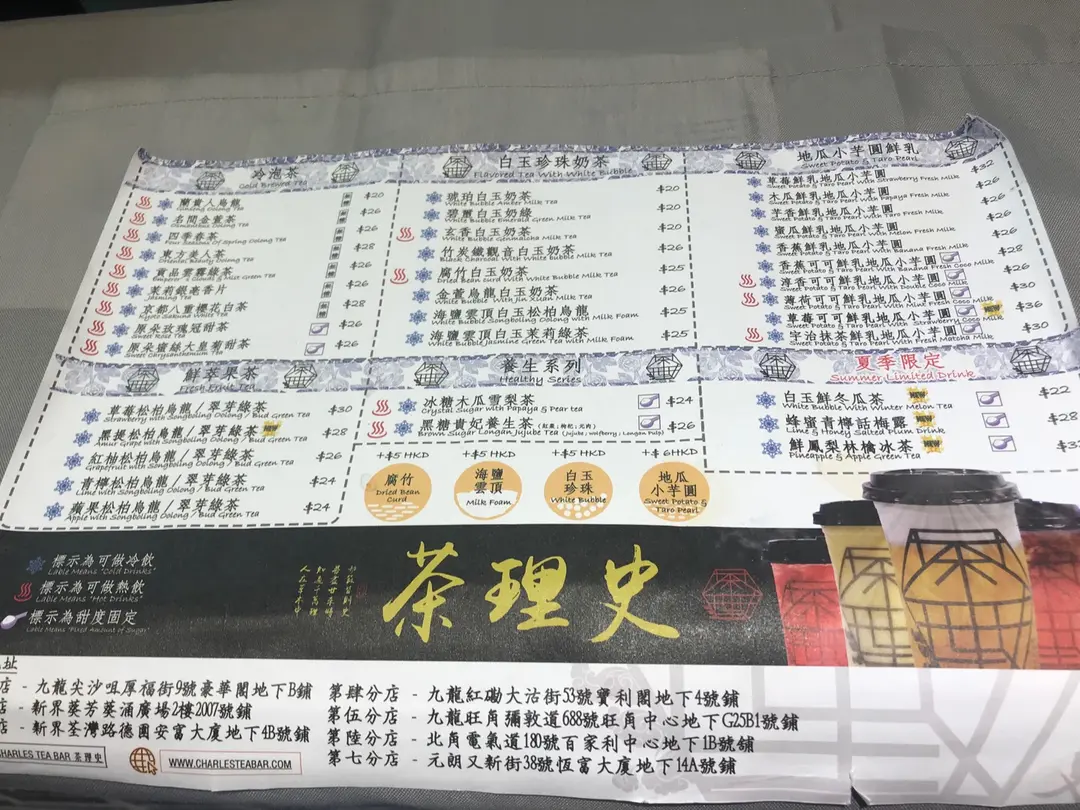 冷泡茶
Cold Brewed Tea
蘭貴人烏龍 $20
Ginseng Oolong Tea
名間金萱茶 $26
Osmanthus Oolong Tea
四季春茶 $26
Four Seasons Of Spring Oolong Tea
東方美人茶 $28
Oriental Beauty Oolong Tea
貢品雲霧綠茶 $26
茉莉銀毫香片 $26
Jasmine Tea
京都八重櫻花白茶 $28
Kyoto Sakura White Tea
原朵玫瑰冠甜茶 $26
Sweet Rose Tea
原朵蜜絲大皇菊甜茶 $26
Sweet Chrysanthemum Tea
白玉珍珠奶茶
Flavored Tea With White Bubble
琥珀白玉奶茶 $20
White Bubble Amber Milk Tea
碧璽白玉奶綠 $20
White Bubble Emerald Green Milk Tea
玄香白玉奶茶 $20
White Bubble Genmaicha Milk Tea
竹炭鐵觀音白玉奶茶 $26
Black Charcoal With White Bubble Milk Tea
腐竹白玉奶茶 $25
Dried Bean Curd With White Bubble Milk Tea
金萱烏龍白玉奶茶 $26
White Bubble With Jin Xuan Milk Tea
海鹽雲頂白玉松柏烏龍 $25
White Bubble Songboling Oolong with Milk Foam
海鹽雲頂白玉茉莉綠茶 $25
White Bubble Jasmine Green Tea with Milk Foam
地瓜小芋圓鮮乳
Sweet Potato & Taro Pearl
草莓鮮乳地瓜小芋圓 $32
Sweet Potato & Taro Pearl With Strawberry Fresh Milk
木瓜鮮乳地瓜小芋圓 $26
Sweet Potato & Taro Pearl With Papaya Fresh Milk
芋香鮮乳地瓜小芋圓 $26
蜜瓜鮮乳地瓜小芋圓 $26
Sweet Potato & Taro Pearl With Melon Fresh Milk
香蕉鮮乳地瓜小芋圓 $26
Sweet Potato & Taro Pearl With Banana Fresh Milk
香蕉可可鮮乳地瓜小芋圓 $28
Sweet Potato & Taro Pearl With Banana Fresh Coco Milk
淳香可可鮮乳地瓜小芋圓 $26
Sweet Potato & Taro Pearl With Double Coco Milk
薄荷可可鮮乳地瓜小芋圓 $30
草莓可可鮮乳地瓜小芋圓 NEW $36
Sweet Potato & Taro Pearl With Strawberry Coco Milk
宇治抹茶鮮乳地瓜小芋圓 $30
Sweet Potato & Taro Pearl With Fresh Matcha Milk
鮮萃果茶
Fresh Fruit Tea
草莓松柏烏龍/翠芽綠茶 $30
Strawberry with Songboling Oolong / Bud Green Tea
黑提松柏烏龍/翠芽綠茶 NEW $28
Black Grape with Songboling Oolong / Bud Green Tea
紅柚松柏烏龍/翠芽綠茶 $26
Grapefruit with Songboling Oolong / Bud Green Tea
青檸松柏烏龍/翠芽綠茶 $24
Lime with Songboling Oolong / Bud Green Tea
蘋果松柏烏龍/翠芽綠茶 $24
Apple with Songboling Oolong / Bud Green Tea
養生系列
Healthy Series
冰糖木瓜雪梨茶 $24
Crystal Sugar with Papaya & Pear tea
黑糖貴妃養生茶 (紅棗;枸杞;元肉) $26
Brown Sugar Longan Jujube Tea (Jujube; wolfberry; Longan Pulp)
+$5 HKD
腐竹
Dried Bean Curd
+$5 HKD
海鹽雲頂
Milk Foam
+$5 HKD
白玉珍珠
White Bubble
+$6HKD
地瓜小芋圓
Sweet Potato & Taro Pearl
夏季限定
Summer Limited Drink
白玉鮮冬瓜茶 NEW $22
White Bubble With Winter Melon Tea
蜂蜜青檸話梅露 NEW $28
Lime & Honey Salted Plum Drink
鮮鳳梨林檎冰茶 NEW
Pineapple & Apple Green Tea
標示為可做冷飲
Lable Means "Cold Drinks"
標示為可做熱飲
Lable Means "Hot Drinks"
標示為甜度固定
Lable Means "Fixed Amount of Sugar"
茶理史
址
店 - 九龍尖沙咀厚福街9號豪華閣地下B鋪
店 - 新界葵芳葵涌廣場2樓2007號鋪
店 - 新界荃灣路德圍安富大廈地下4B號鋪
第肆分店 - 九龍紅磡大沽街53號寶利閣地下4號鋪
第伍分店 - 九龍旺角彌敦道688號旺角中心地下G25B1號鋪
第陸分店 - 北角電氣道180號百家利中心地下1B號鋪
第七分店 - 元朗又新街38號恆富大廈地下14A號鋪
CHARLES TEA BAR 茶理史
WWW.CHARLESTEABAR.COM